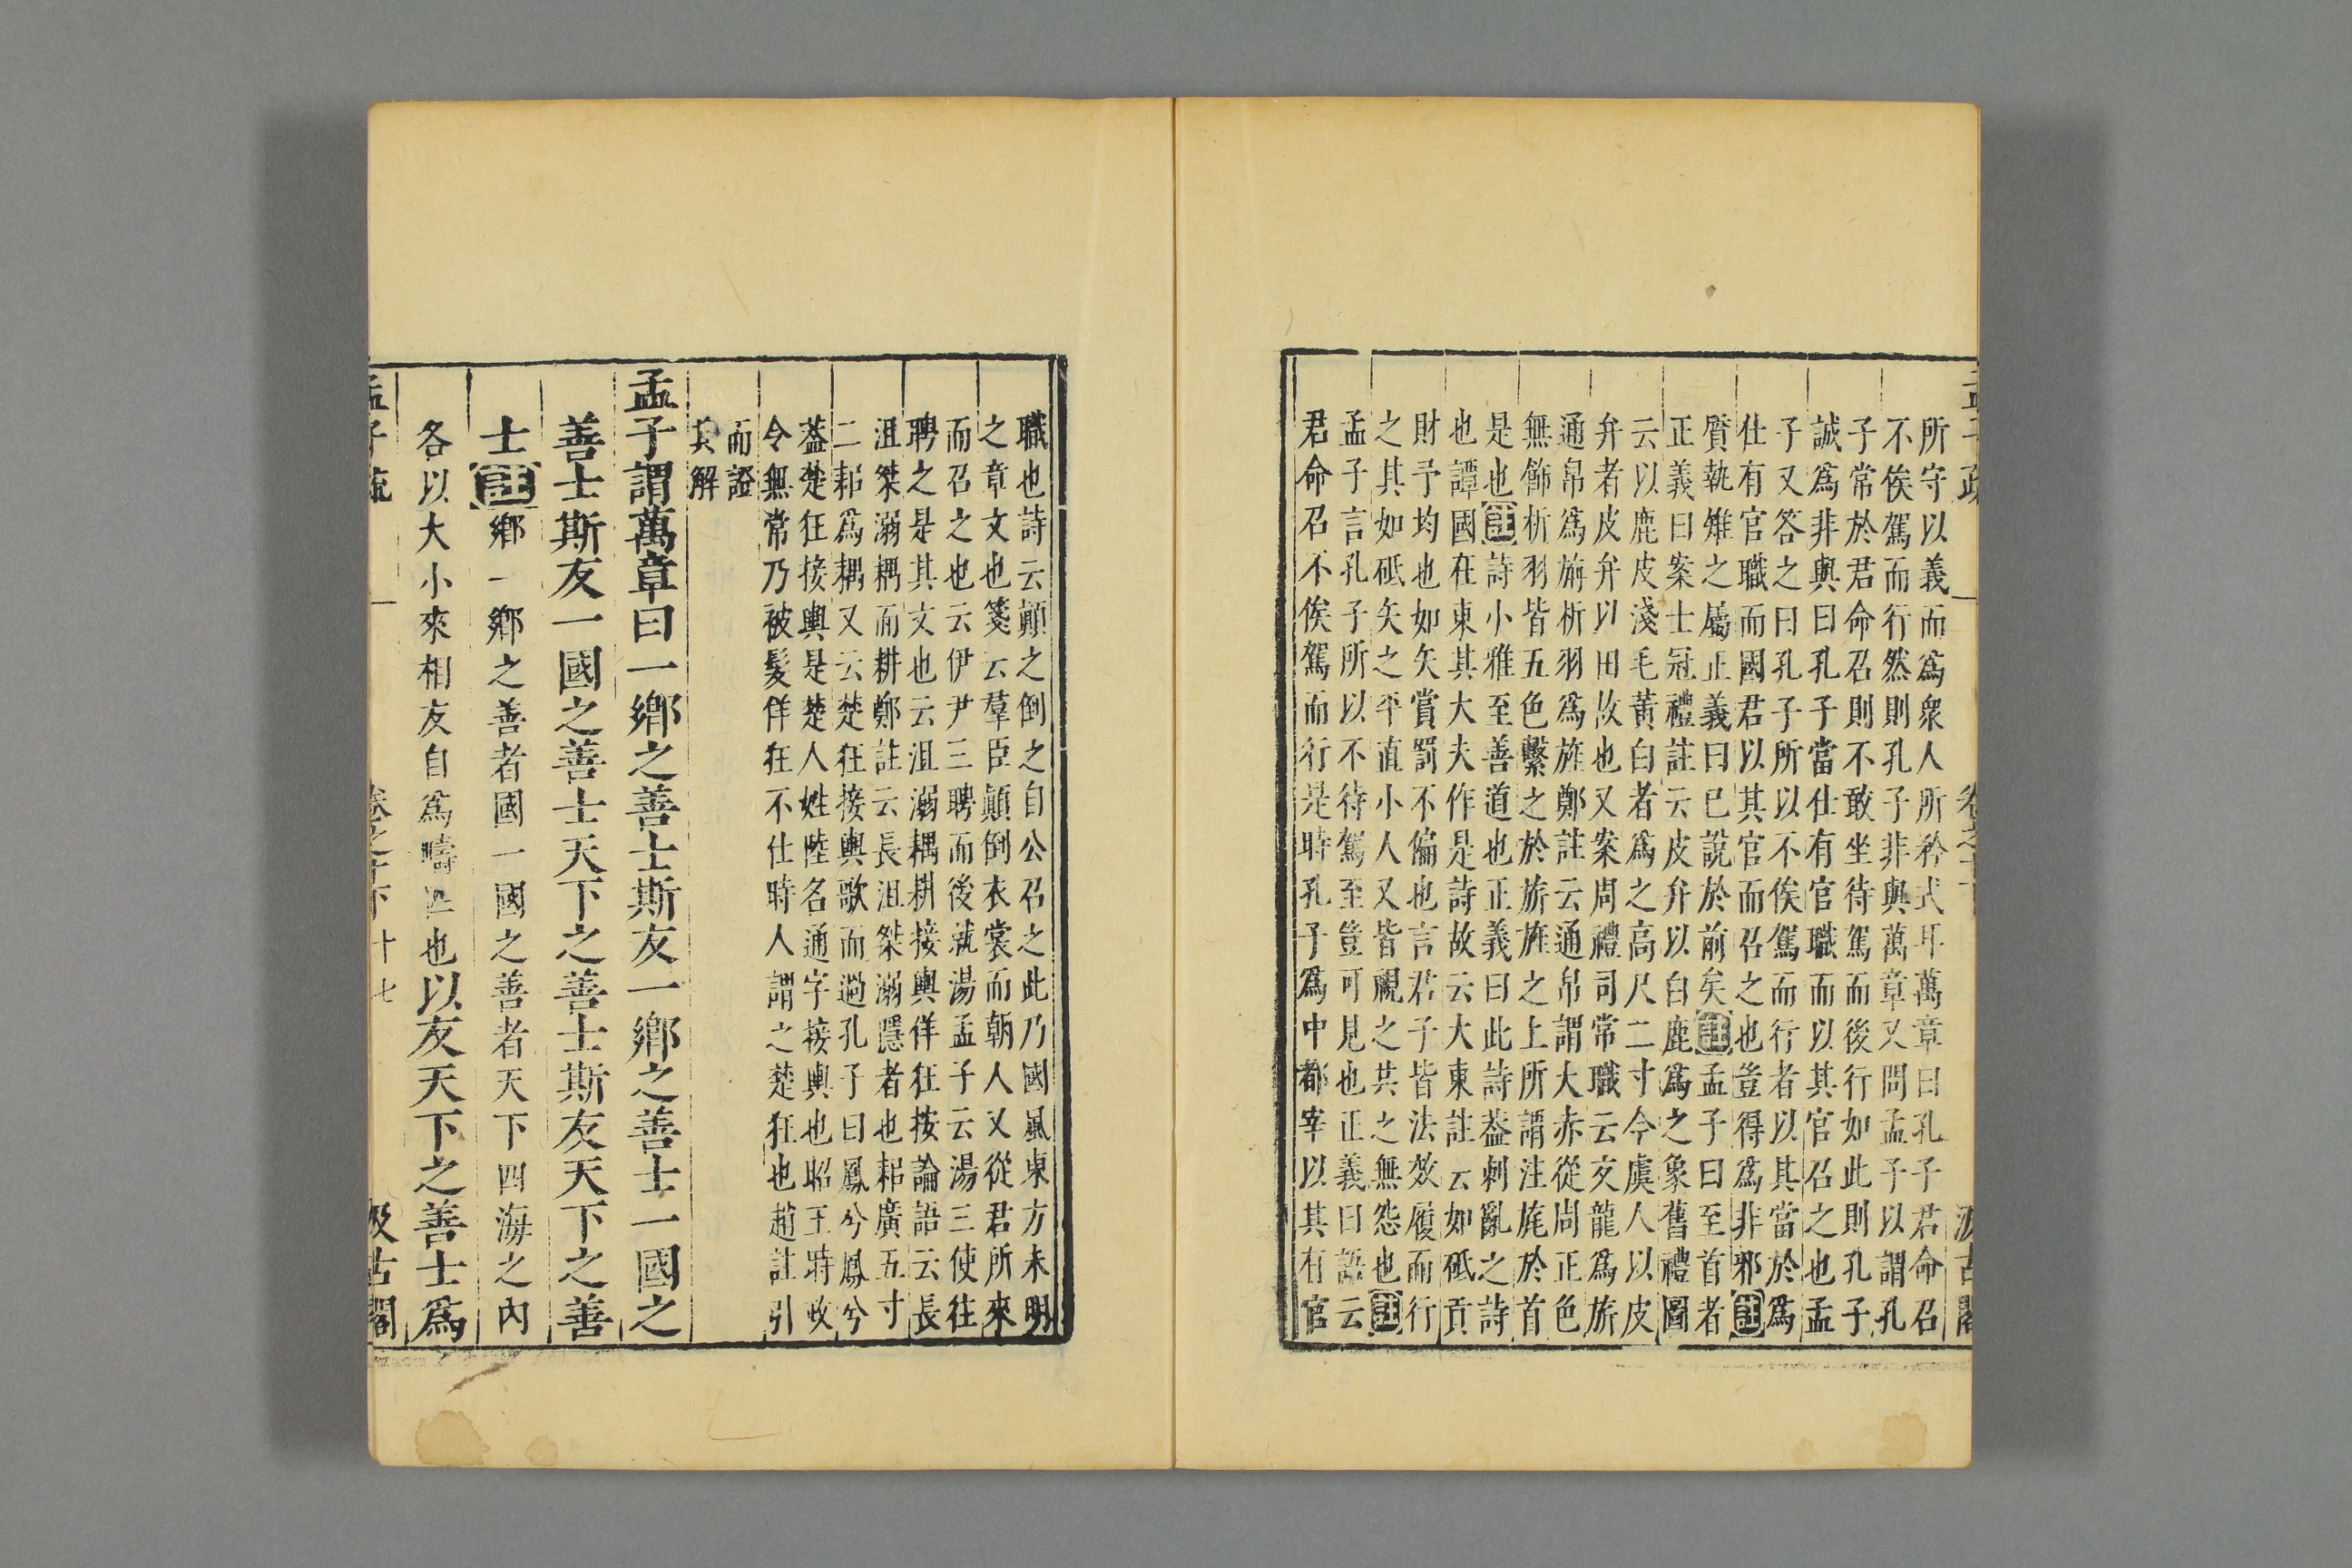 所守以義而爲衆人所矜式耳萬章曰孔子君命召
不俟駕而行然則孔子非與萬章又問孟子以謂孔
子常於君命召則不敢坐待駕而後行如此則孔子
誠爲非與曰孔子當仕有官職而以其官召之也孟
子又答之曰孔子所以不俟駕而行者以其當於爲
仕有官職而國君以其官而召之也豈得爲非邪註
贋執雉之屬正義曰巳說於前矣註孟子曰至首者
正義曰案士冠禮註云皮弁以白鹿爲之象舊禮圖
云以鹿皮淺毛黃白者爲之高尺二寸今虞人以皮
弁者皮弁以田故也又案周禮司常職云交龍爲旂
通帛爲旃析羽爲旌鄭註云通帛謂大赤從周正色
無飾析羽皆五色繫之於旂旌之上所謂注旄於首
是也註詩小雅至善道也正義曰此詩葢刺亂之詩
也譚國在東其大夫作是詩故云大東註云如砥貢
財予均也如矢賞罰不偏也言君子皆法效履而行
之其如砥矢之平直小人又皆視之其之無怨也註
孟子言孔子所以不待駕至豈可見也正義曰語云
君命召不俟駕而行是時孔子爲中都宰以其有官
職也詩云顚之倒之自公召之此乃國風東方未明
之章文也箋云羣臣顚倒衣裳而朝人又從君所來
而召之也云伊尹三聘而後就湯孟子云湯三使往
聘之是其文也云沮溺耦耕接輿佯狂按論語云長
沮桀溺耦而耕鄭註云長沮桀溺隱者也耜廣五寸
二耜爲耦又云楚狂接輿歌而過孔子曰鳳兮鳳兮
葢楚狂接輿是楚人姓陸名通字接輿也昭王時政
令無常乃被髮佯狂不仕時人謂之楚狂也趙註引
而證
其解
孟子謂萬章曰一鄉之善士斯友一鄉之善士一國之
善士斯友一國之善士天下之善士斯友天下之善
士註鄉一鄉之善者國一國之善者天下四海之內
各以大小來相友自爲疇匹也以友天下之善士爲
孟子疏 卷之十下 十七 汲古閣